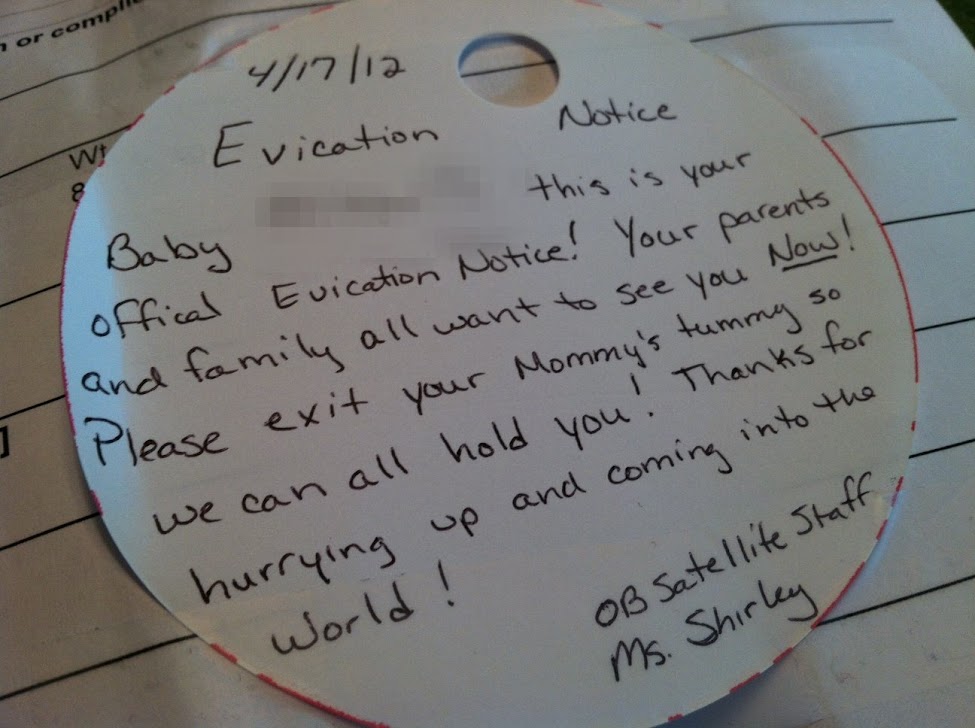 n or compli
4/17/12
Evication Notice
Wt
8
Baby this is your
offical Evication Notice! Your parents
and family all want to see you Now!
Please exit your Mommy's tummy so
we can all hold you! Thanks for
hurrying up and coming into the
world!
OB Satellite Staff
Ms. Shirley